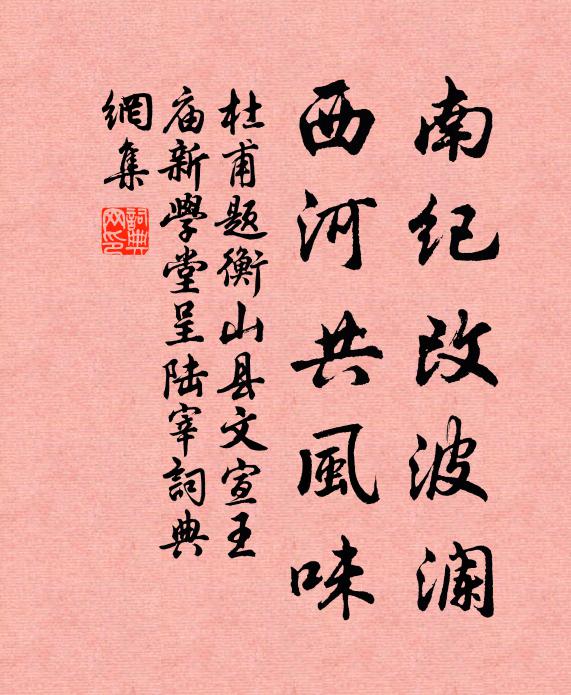 南纪改波澜
西河共風味
杜甫题衡山县文宣王
庙新學堂呈陆宰詞典
網集
詞典网印